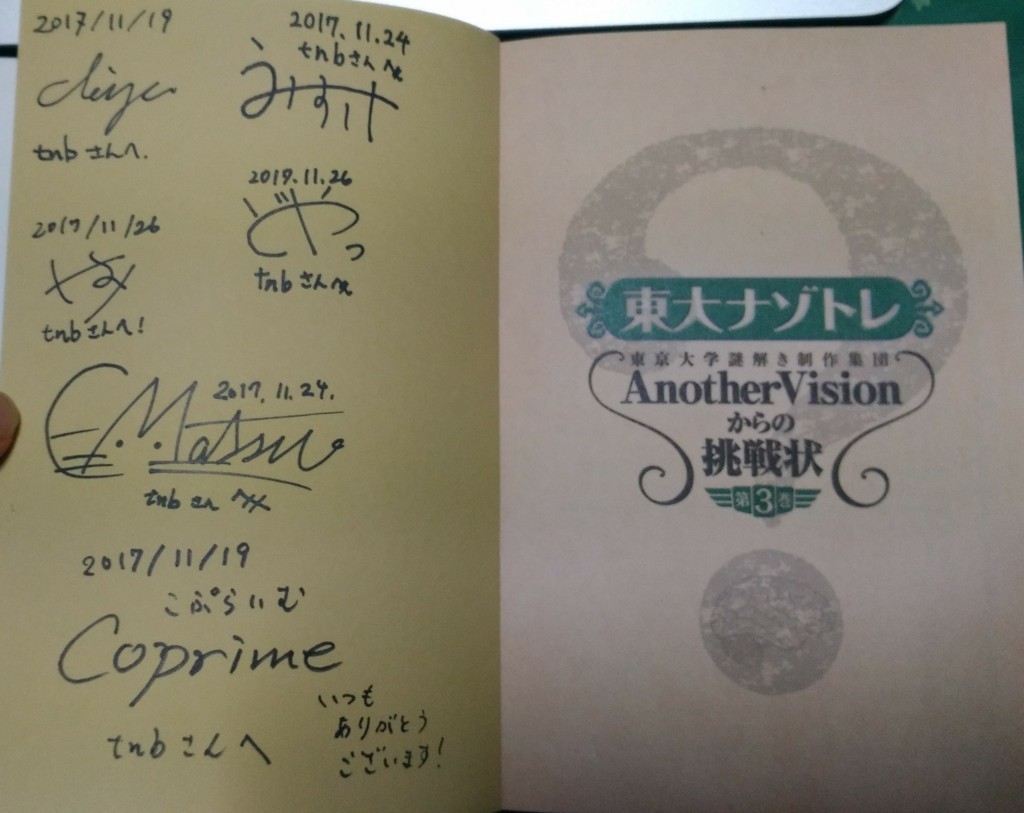 2017/11/19
tnbさんへ.
2017.11.24
tnbさんへ
みすけ
2017/11/26
tnbさんへ!
2017.11.26
tnbさんへ
2017.11.24.
Matsu
tnbさんへ
2017/11/19
こぷらいむ
Coprime
tnbさんへ
いつも
ありがとう
ございます!
東大ナゾトレ
東京大学謎解き制作集団
AnotherVision
からの
挑戦状
第3巻